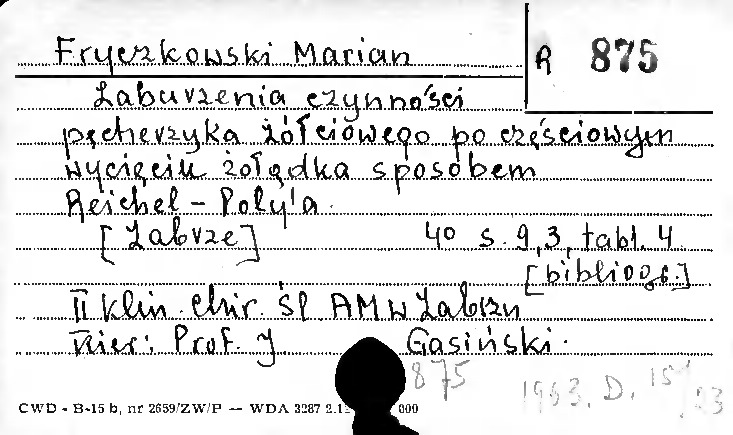 Fryczkowski Marian
R 875
Zaburzenia czynności
pęcherzyka żółciowego po częściowym
wycięciu żołądka sposobem
Reichel - Poly'a.
[Zabrze] 4° s. 9, 3, tabl. 4
[bibliogr.]
II Klin. Chir. Śl AM w Zabrzu
Kier: Prof. J Gasiński.
875 1963. D. 151/23
CWD - B-15 b, nr 2659/ZW/P — WDA 3287 2.1 000